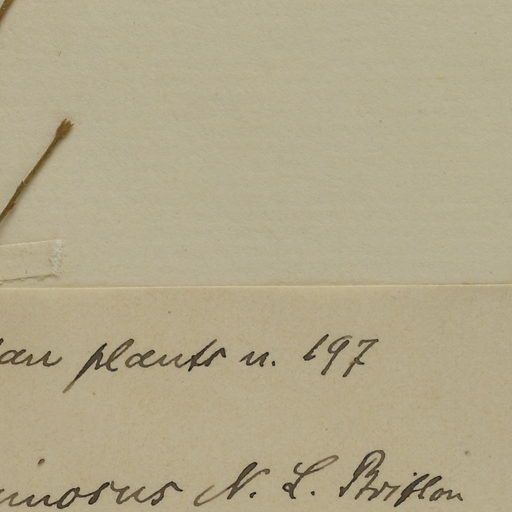 an plants n. 197
inosus N. L. Britton